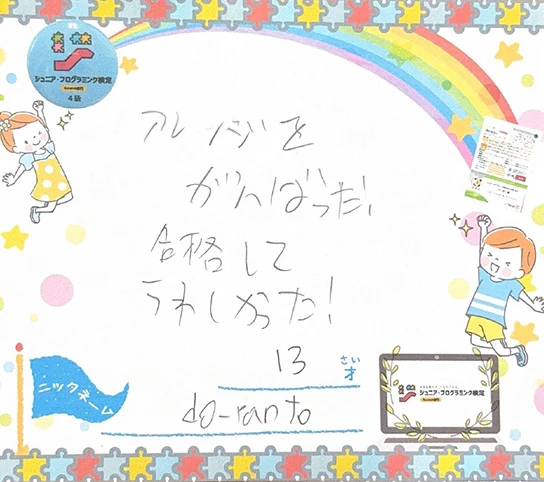 ジュニア・プログラミング検定
Scratch部門
4級
アレンジを
がんばった。
合格して
うれしかった!
13 さい才
ニックネーム
do-ranto
ジュニア・プログラミング検定
Scratch部門